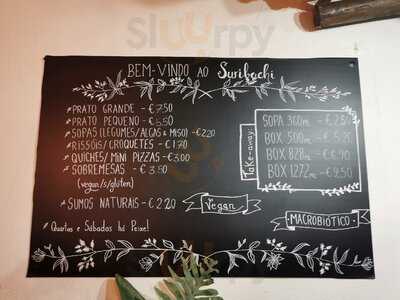 BEM-VINDO AO Suribachi
PRATO GRANDE - €7.50
PRATO PEQUENO - €5.50
SOPAS (LEGUMES/ALGAS & MISO) - €2.20
RISSÓIS/CROQUETES - €1.70
QUICHES/MINI PIZZAS - €3.00
SOBREMESAS - € 3.50
(vegan/s/glúten)
SUMOS NATURAIS - €2.20
Quartas e Sábados há Peixe!
Vegan
Take-away
SOPA 360ml - €2.5
BOX 500ml - €5.25
BOX 828ml - €6.90
BOX 1272ml - €9.50
MACROBIÓTICO
slurrpy